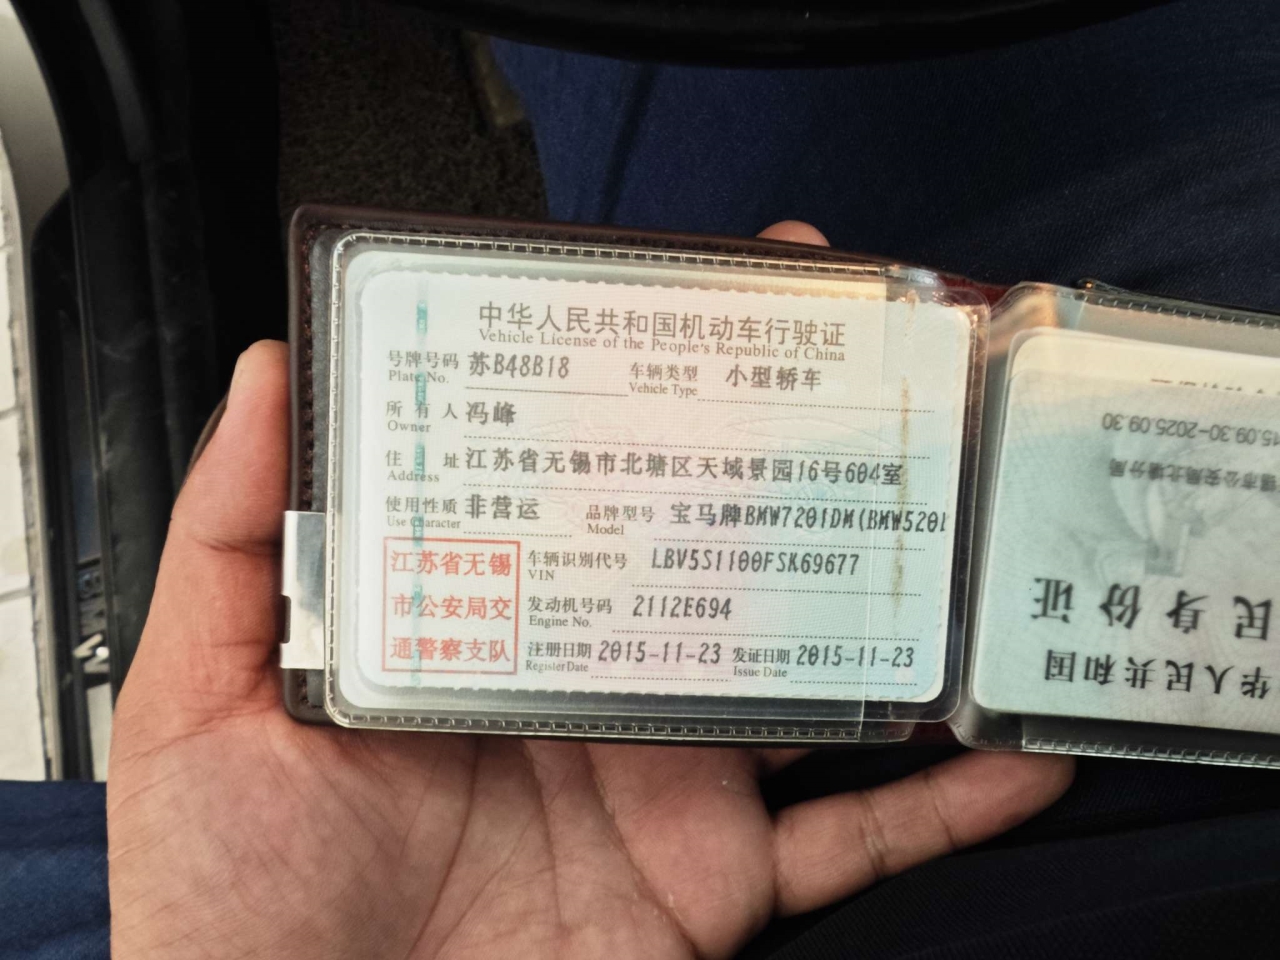 中华人民共和国机动车行驶证
Vehicle License of the People's Republic of China
号牌号码 苏B48B18 车辆类型 小型轿车
Plate No. Vehicle Type
所有人 冯峰
Owner
住址 江苏省无锡市北塘区天域景园16号604室
Address
使用性质 非营运 品牌型号 宝马牌BMW7201DM(BMW520L
Use Character Model
江苏省无锡
市公安局交
通警察支队
车辆识别代号 LBV5S1100FSK69677
VIN
发动机号码 2112E694
Engine No.
注册日期 2015-11-23 发证日期 2015-11-23
Register Date Issue Date
华人民共和国
民身份证
锡市公安局北塘分局
15.09.30-2025.09.30